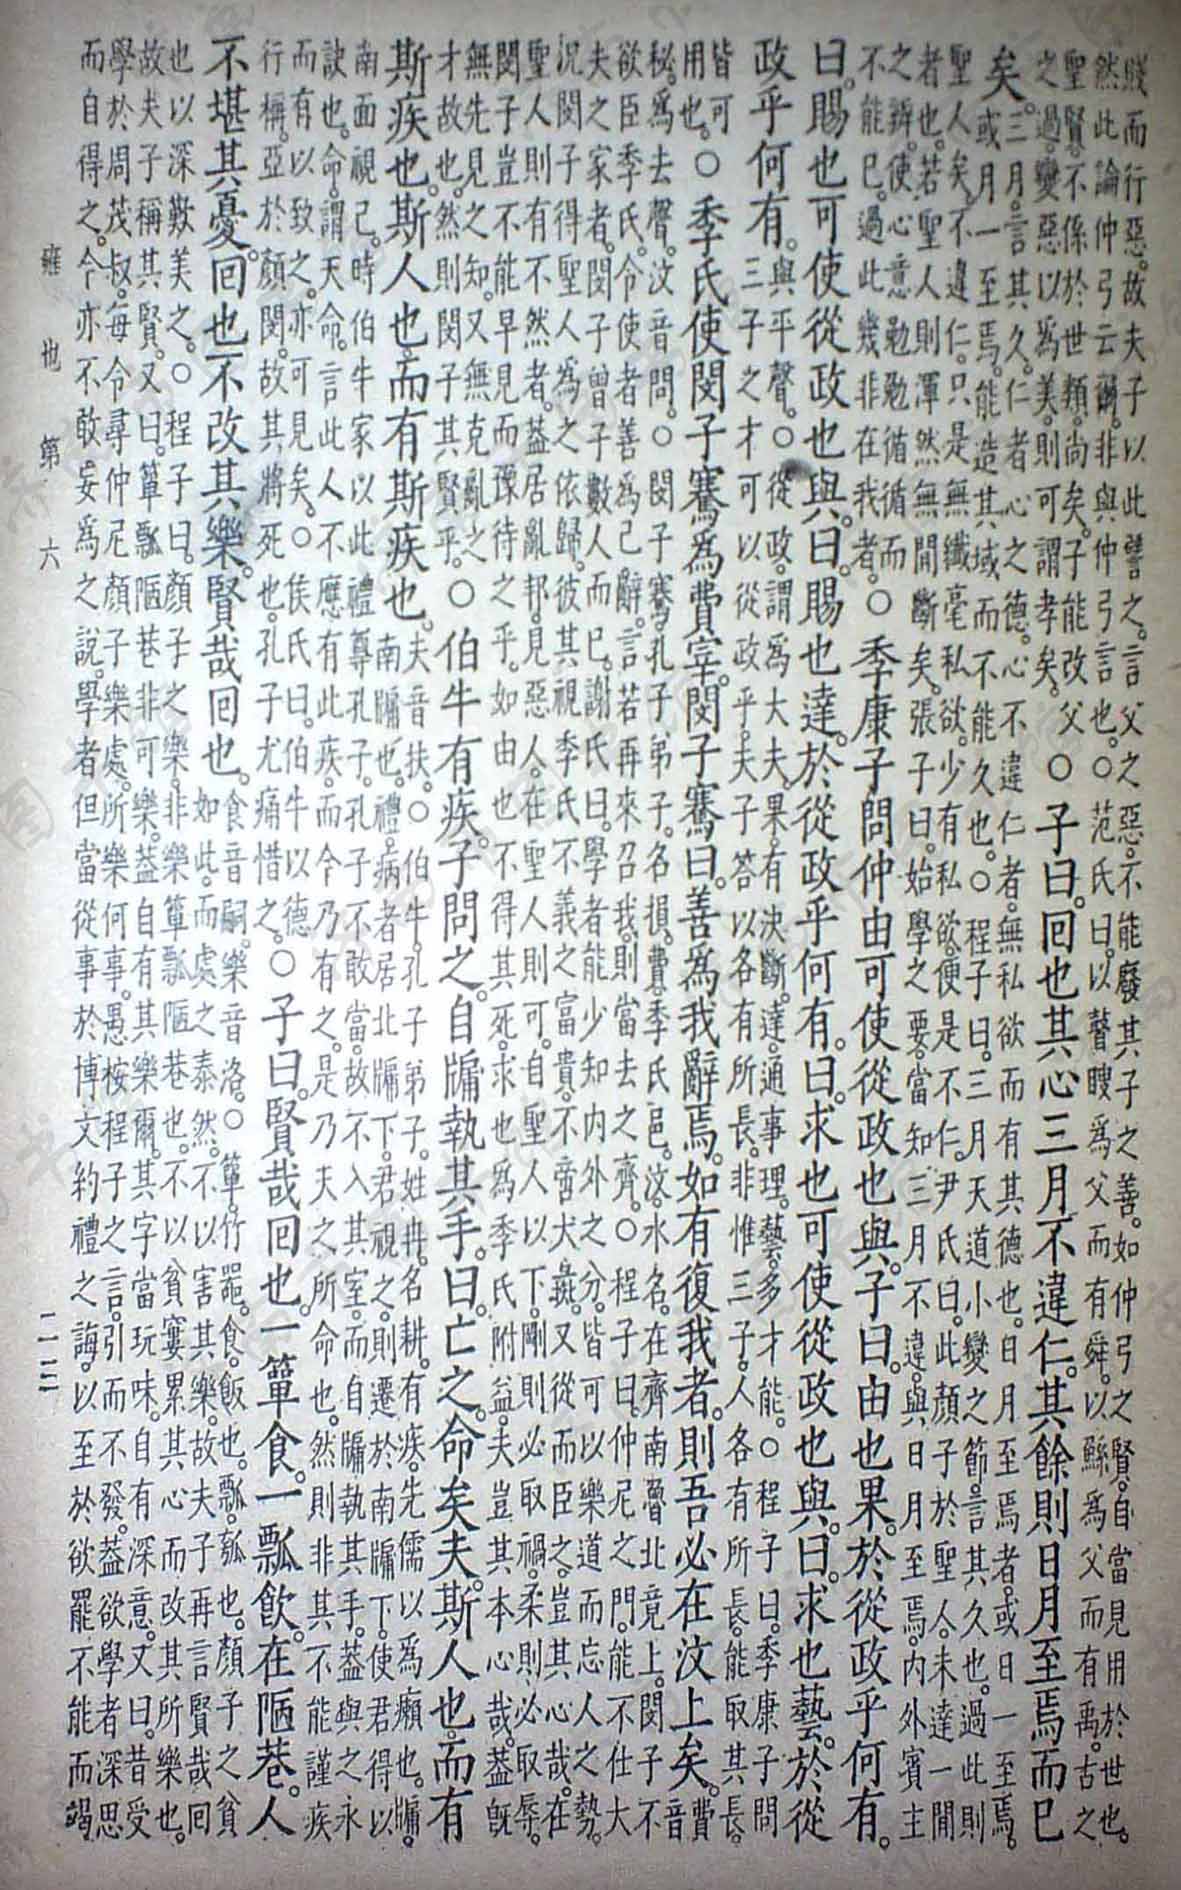 賤而行惡。故夫子以此譬之。言父之惡。不能廢其子之善。如仲弓之賢。自當見用於世也。
然此論仲弓云爾。非與仲弓言也。○范氏曰。以瞽瞍為父而有舜。以鯀為父而有禹。古之
聖賢。不係於世類。尚矣。子能改父
之過。變惡以為美。則可謂孝矣。
○子曰。回也其心三月不違仁。其餘則日月至焉而已
矣。
三月。言其久。仁者心之德。心不違仁者。無私欲而有其德也。日月至焉者。或日一至焉。
或月一至焉。能造其域而不能久也。○程子曰。三月天道小變之節。言其久也。過此則
聖人矣。不違仁。只是無纖毫私欲。少有私欲。便是不仁。尹氏曰。此顏子於聖人。未達一閒
者也。若聖人則渾然無閒斷矣。張子曰。始學之要。當知三月不違。與日月至焉。內外賓主
之辨。使心意勉勉循循而
不能已。過此幾非在我者。
○季康子問仲由可使從政也與。子曰。由也果。於從政乎何有。
曰。賜也可使從政也與。曰。賜也達。於從政乎何有。曰。求也可使從政也與。曰。求也藝。於從
政乎何有。
與平聲。○從政。謂為大夫。果。有決斷。達。通事理。藝。多才能。○程子曰。季康子問
三子之才可以從政乎。夫子答以各有所長。非惟三子。人各有所長。能取其長。
皆可
用也。
○季氏使閔子騫為費宰。閔子騫曰。善為我辭焉。如有復我者。則吾必在汶上矣。
費
音
秘。為去聲。汶音問。○閔子騫孔子弟子。名損。費。季氏邑。汶。水名。在齊南魯北竟上。閔子不
欲臣季氏。令使者善為己辭。言若再來召我。則當去之齊。○程子曰。仲尼之門。能不仕大
夫之家者。閔子曾子數人而已。謝氏曰。學者能少知內外之分。皆可以樂道而忘人之勢。
況閔子得聖人為之依歸。彼其視季氏不義之富貴。不啻犬彘。又從而臣之。豈其心哉。在
聖人則有不然者。蓋居亂邦。見惡人。在聖人則可。自聖人以下。剛則必取禍。柔則必取辱。
閔子豈不能早見而豫待之乎。如由也不得其死。求也為季氏附益。夫豈其本心哉。蓋既
無先見之知。又無克亂之
才故也。然則閔子其賢乎。
○伯牛有疾。子問之。自牖執其手。曰。亡之。命矣夫。斯人也。而有
斯疾也。斯人也。而有斯疾也。
夫音扶。○伯牛。孔子弟子。姓冉。名耕。有疾。先儒以為癩也。牖。
南牖也。禮。病者居北牖下。君視之。則遷於南牖下。使君得以
南面視己。時伯牛家以此禮尊孔子。孔子不敢當。故不入其室。而自牖執其手。蓋與之永
訣也。命。謂天命。言此人不應有此疾。而今乃有之。是乃天之所命也。然則非其不能謹疾
而有以致之。亦可見矣。○侯氏曰。伯牛以德
行稱。亞於顏閔。故其將死也。孔子尤痛惜之。
○子曰。賢哉回也。一簞食。一瓢飲。在陋巷。人
不堪其憂。回也不改其樂。賢哉回也。
食音嗣。樂音洛。○簞。竹器。食。飯也。瓢。瓠也。顏子之貧
如此。而處之泰然。不以害其樂。故夫子再言賢哉回
也以深歎美之。○程子曰。顏子之樂。非樂簞瓢陋巷也。不以貧窶累其心而改其所樂也。
故夫子稱其賢。又曰。簞瓢陋巷非可樂。蓋自有其樂爾。其字當玩味。自有深意。又曰。昔受
學於周茂叔。每令尋仲尼顏子樂處。所樂何事。愚桉程子之言。引而不發。蓋欲學者深思
而自得之。今亦不敢妄為之說。學者但當從事於博文約禮之誨。以至於欲罷不能而竭
雍也第六 二三